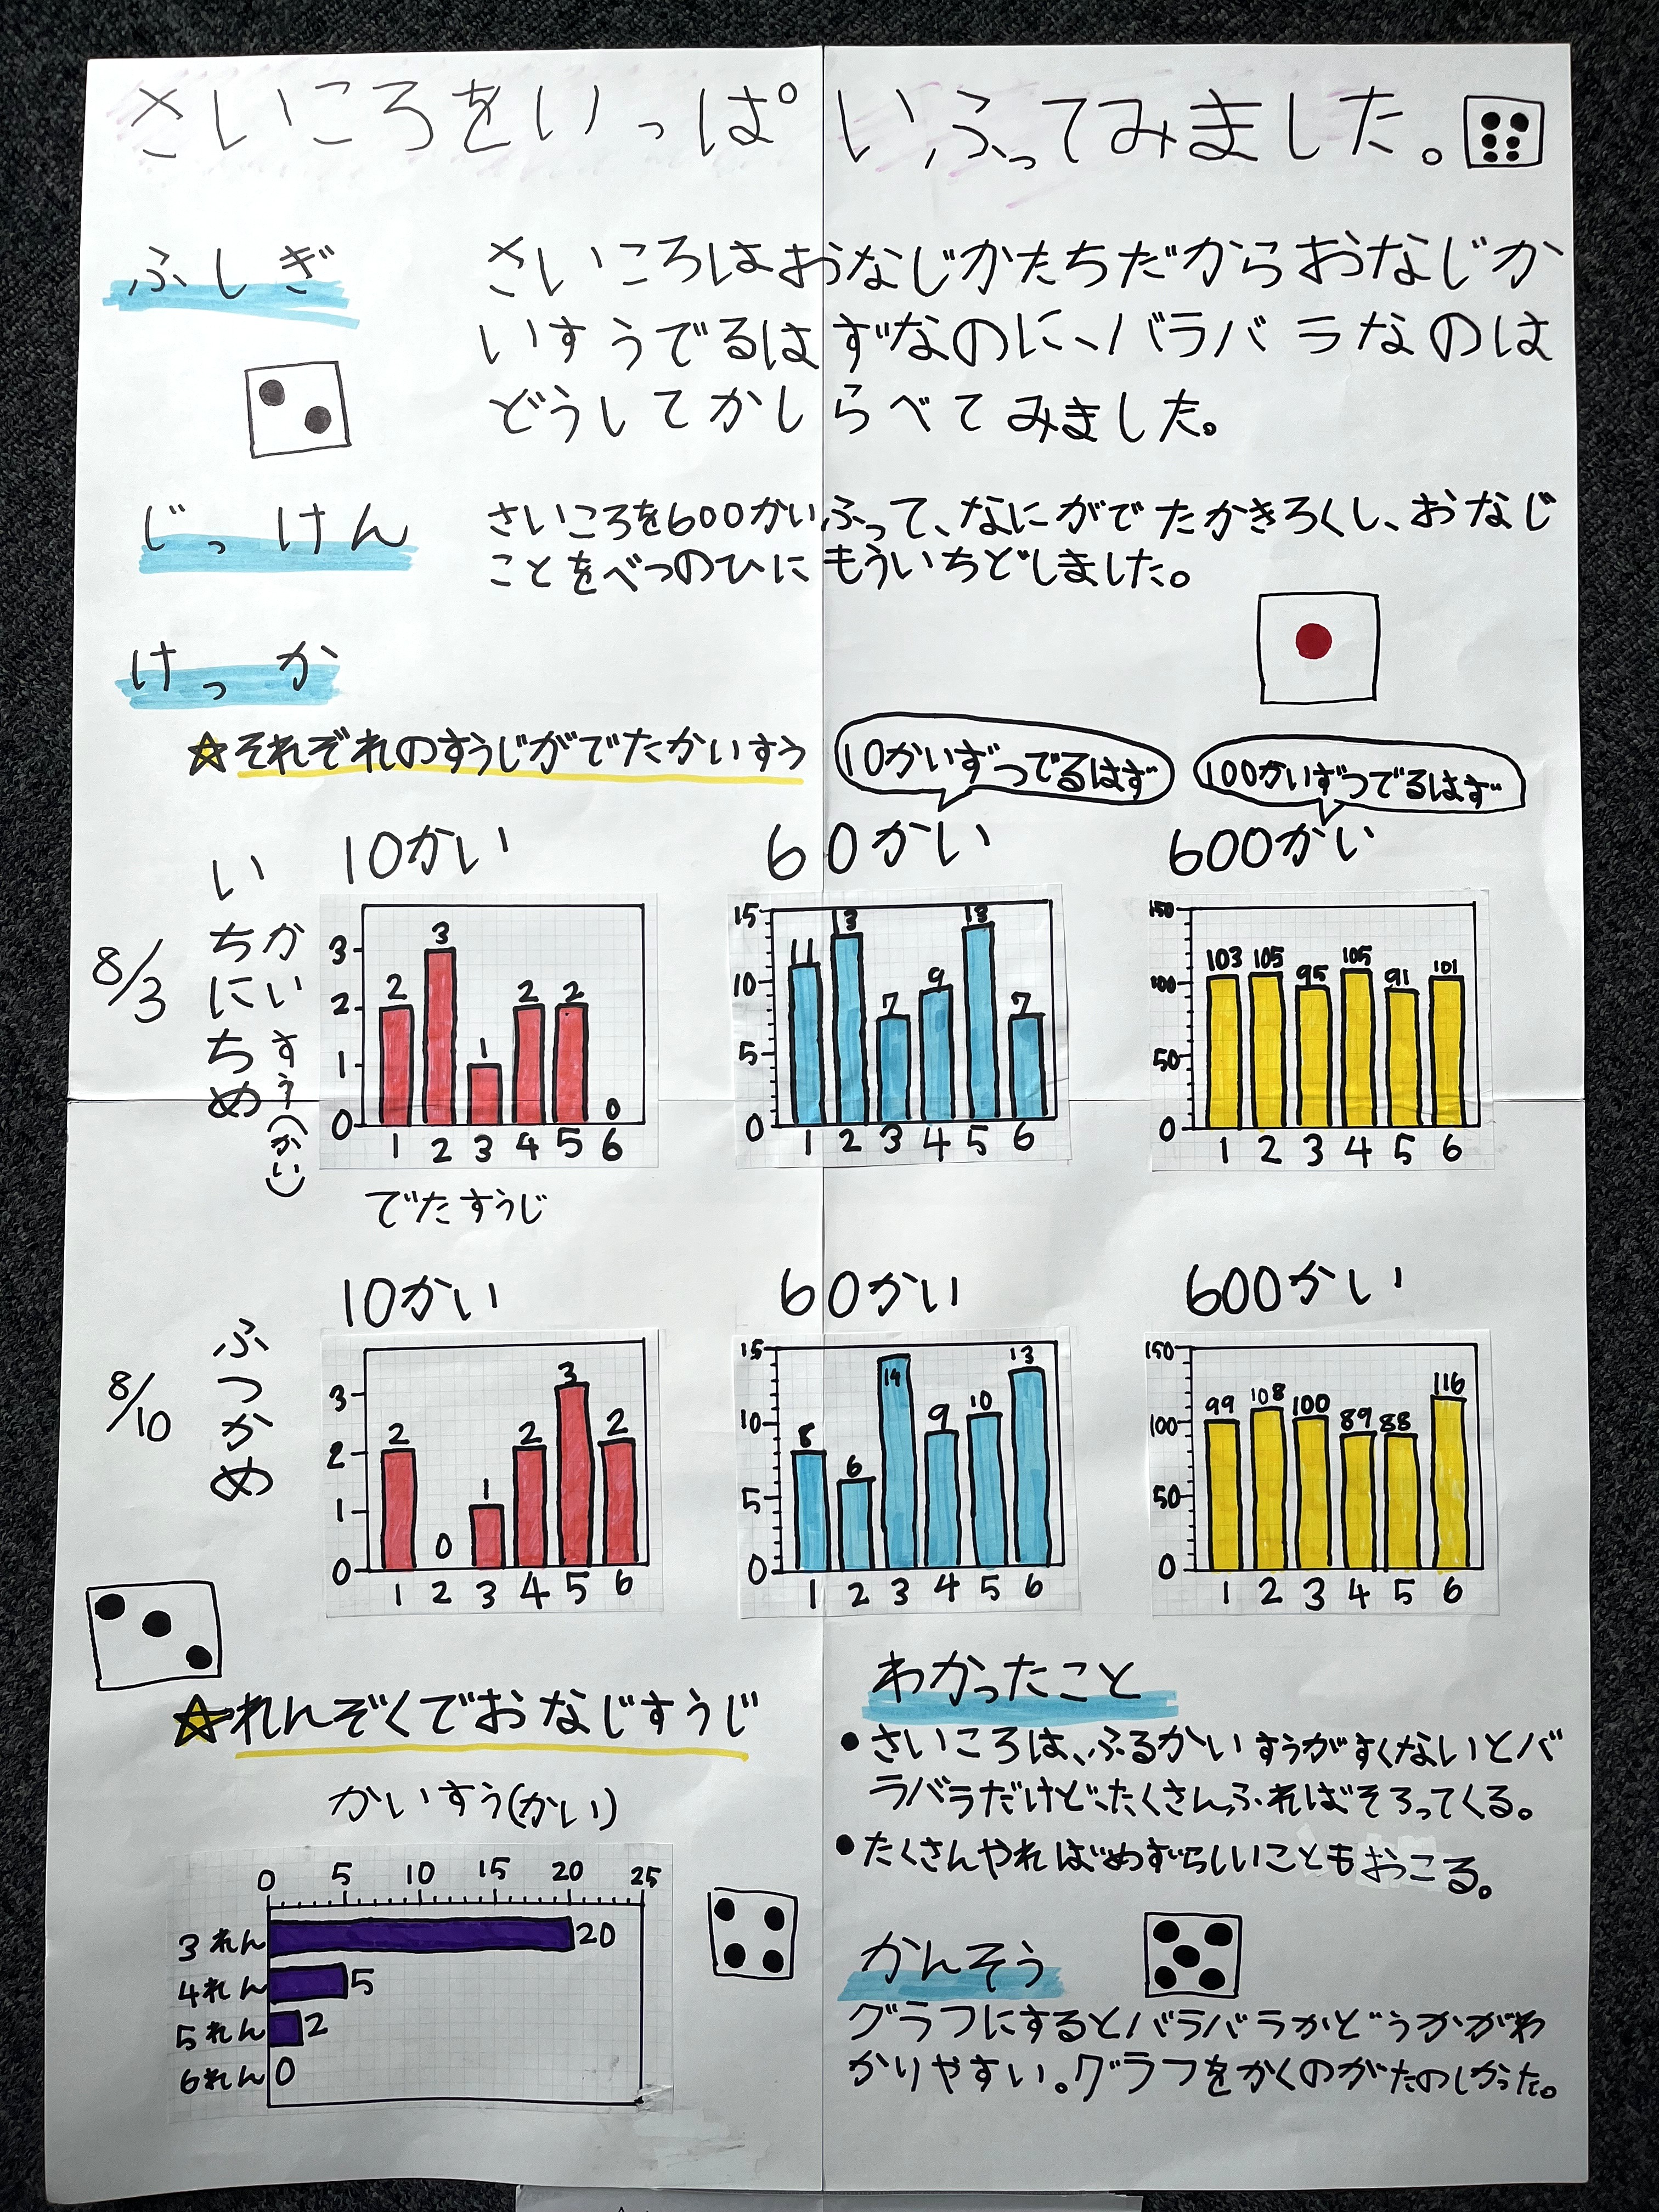 さいころをいっぱいふってみました。
ふしぎ
さいころはおなじかたちだからおなじか
いすうでるはずなのに、バラバラなのは
どうしてかしらべてみました。
じっけん
さいころを600かいふって、なにがでたかきろくし、おなじ
ことをべつのひにもういちどしました。
けっか
☆それぞれのすうじがでたかいすう
10かいずつでるはず
100かいずつでるはず
8/3
いちにちめ
かいすう(かい)
10かい
3
2
1
0
2
3
1
2
2
0
1 2 3 4 5 6
でたすうじ
60かい
15
10
5
0
11
13
7
9
13
7
1 2 3 4 5 6
600かい
150
100
50
0
103
105
95
105
91
101
1 2 3 4 5 6
8/10
ふつかめ
10かい
3
2
1
0
2
0
1
2
3
2
1 2 3 4 5 6
60かい
15
10
5
0
8
6
14
9
10
13
1 2 3 4 5 6
600かい
150
100
50
0
99
108
100
89
88
116
1 2 3 4 5 6
☆れんぞくでおなじすうじ
かいすう(かい)
0 5 10 15 20 25
3れん 20
4れん 5
5れん 2
6れん 0
わかったこと
●さいころは、ふるかいすうがすくないとバ
ラバラだけど、たくさんふればそろってくる。
●たくさんやればめずらしいこともおこる。
かんそう
グラフにするとバラバラかどうかがわ
かりやすい。グラフをかくのがたのしかった。